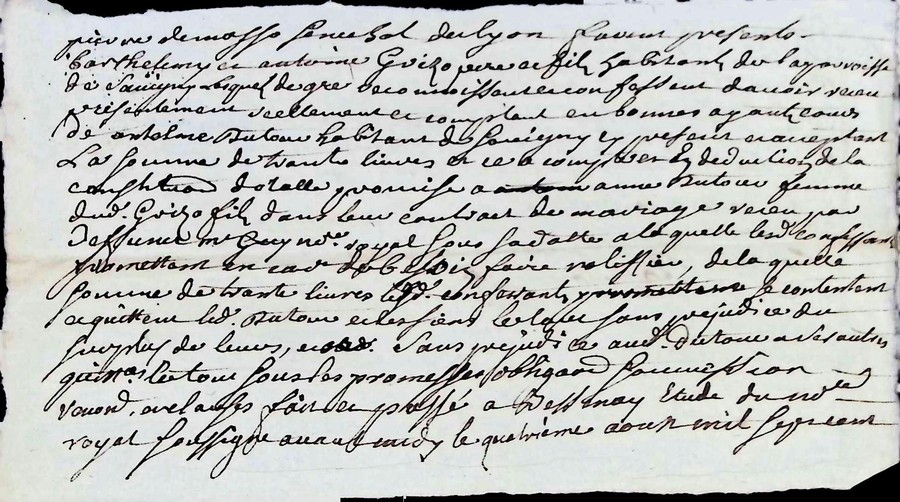 pierre demasso senechal de lyon furent presents
Barthelemy et antoine Grizo pere et fils habitants de la parroisse
de Sauvigny lesquels de gre reconnoissent et confessent davoir receu
presentement reellement et comptant en bonnes ayant cours
de antoine Dutour habitant de Souvigny cy present et acceptant
La somme de trante livres et ce a compte et en deduction de la
constitution dotalle promise a anne Dutour femme
dud. Grizo fils dans leur contract de mariage receu par
deffunct me Guy nre. royal sous sa datte a laquelle lesd. confessants
promettent en cas de besoin faire notiffier, de laquelle
somme de trante livres lesd. confessants se contentent
et quittent led. Dutour et les siens le tout sans prejudice du
surplus de leurs, sans prejudice aud. dutour a ses autres
quittas. le tout sous les promesses obligaon soumission
renond. et clauses fait et passé a Bessenay Etude du nore
royal soussigne avant midy le quatrieme aoust mil sept cent